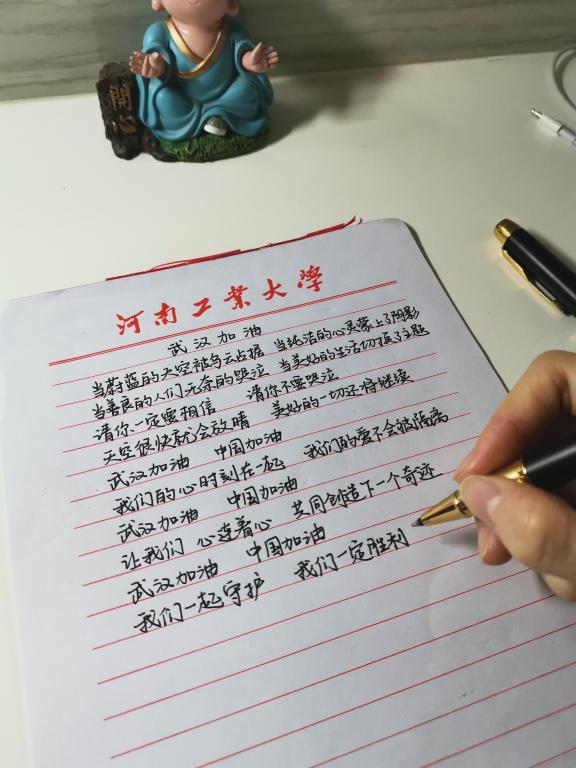 開心
河南工業大學
武汉加油
当蔚蓝的天空被乌云占据 当纯洁的心灵蒙上了阴影
当善良的人们无奈的哭泣 当美好的生活切换了主题
请你一定要相信 请你不要哭泣
天空很快就会放晴 美好的一切还将继续
武汉加油 中国加油
我们的心时刻在一起 我们的爱不会被隔离
武汉加油 中国加油
让我们 心连着心 共同创造下一个奇迹
武汉加油 中国加油
我们一起守护 我们一定胜利